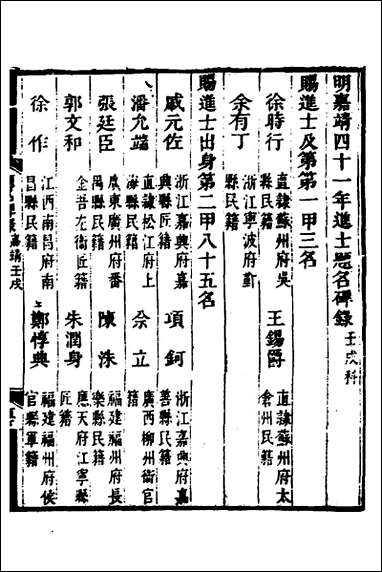 明嘉靖四十一年進士題名碑錄 壬戌科
賜進士及第第一甲三名
徐時行 直隸蘇州府吳縣民籍
王錫爵 直隸蘇州府太倉州民籍
余有丁 浙江寧波府鄞縣民籍
賜進士出身第二甲八十五名
戚元佐 浙江嘉興府嘉興縣匠籍
項錡 浙江嘉興府嘉善縣民籍
潘允端 直隸松江府上海縣民籍
佘立 廣西柳州衛官籍
張廷臣 廣東廣州府番禺縣民籍
陳洙 福建福州府長樂縣民籍
郭文和 金吾左衛匠籍
朱潤身 應天府江寧縣匠籍
徐作 江西南昌府南昌縣民籍
鄭惇典 福建福州府侯官縣軍籍
嘉靖壬戌